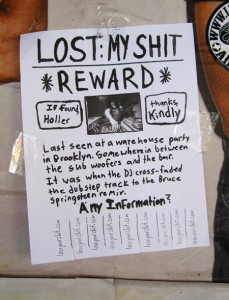 LOST: MY SHIT
*REWARD*
If found,
Holler
thanks,
Kindly
Last seen at a warehouse party
in Brooklyn. Somewhere in between
the sub woofers and the bar.
It was when the DJ cross-faded
the dubstep track to the Bruce
Springsteen remix.
Any Information?